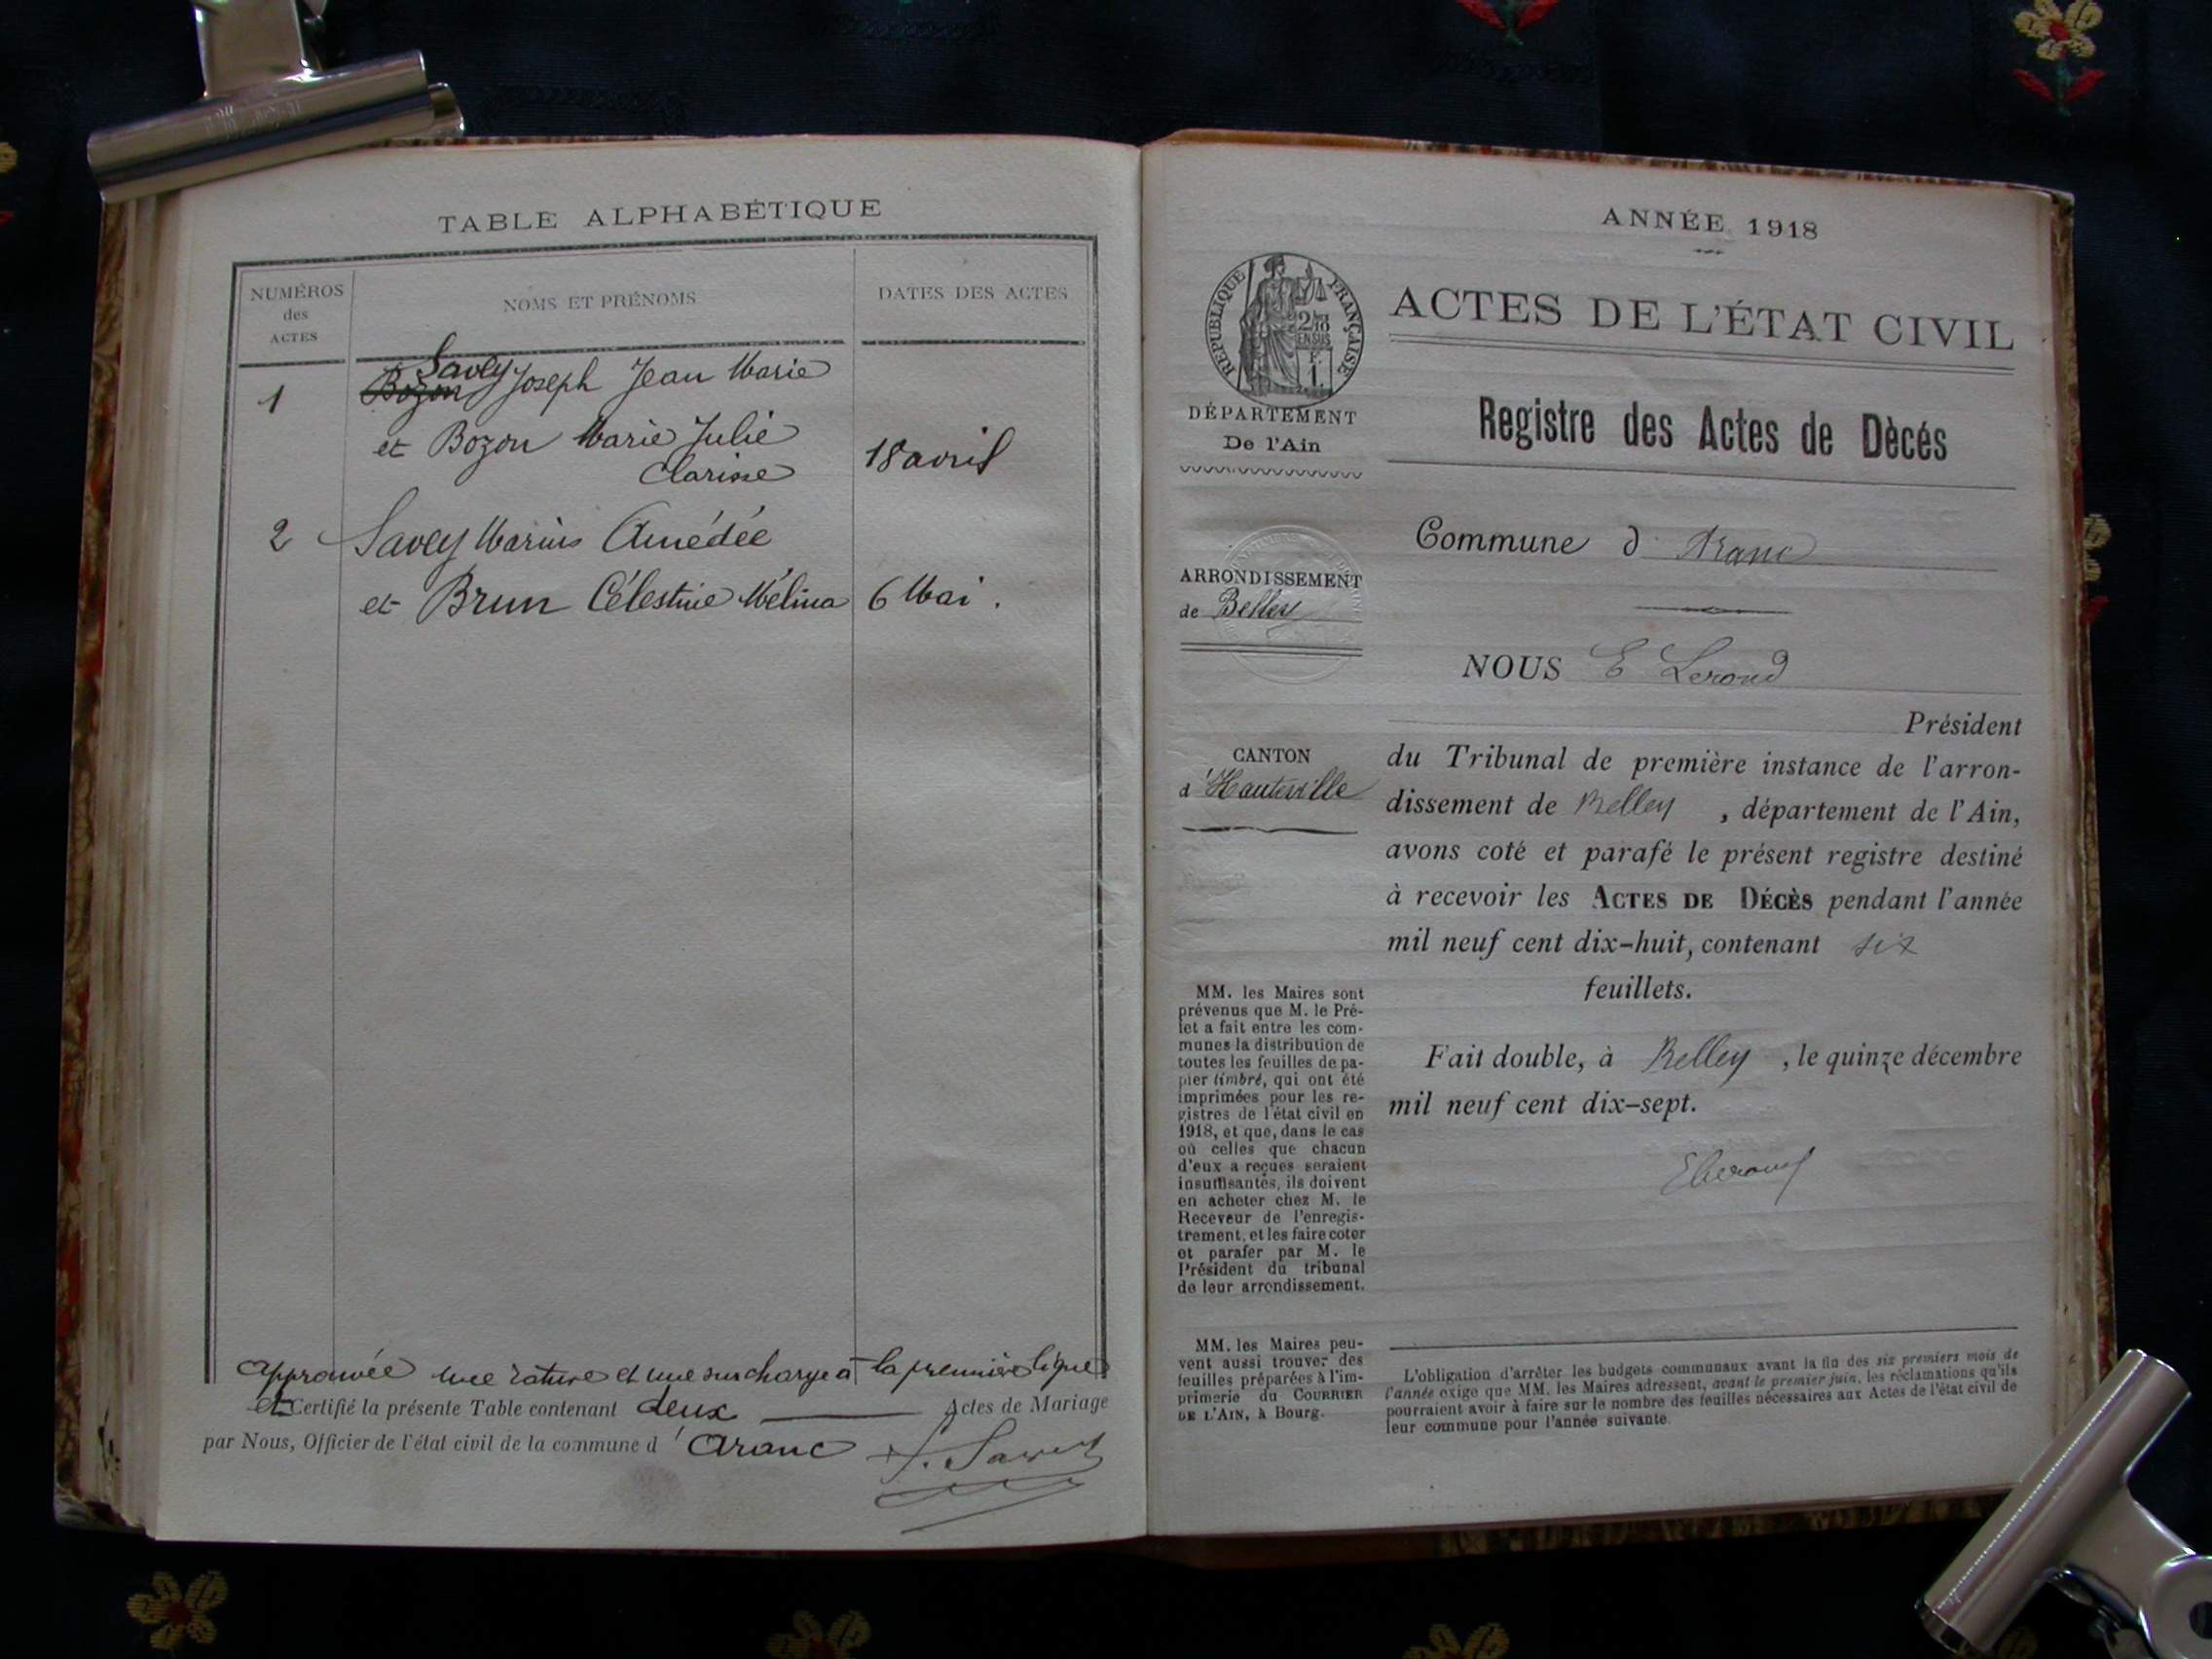 TABLE ALPHABÉTIQUE
NUMÉROS
des
ACTES
NOMS ET PRÉNOMS
DATES DES ACTES
Savey
1 Bozon Joseph Jean Marie
et Bozon Marie Julie
Clarisse 18 avril
2 Savey Marius Amédée
et Brun Célestine Mélina 6 Mai.
approuvée une rature et une surcharge à la première ligne
et Certifié la présente Table contenant deux Actes de Mariage
par Nous, Officier de l'état civil de la commune d'Aranc
ANNÉE 1918
RÉPUBLIQUE FRANÇAISE
2/10
EN SUS
1
DÉPARTEMENT
De l'Ain
ARRONDISSEMENT
de Belley
CANTON
d'Hauteville
MM. les Maires sont
prévenus que M. le Pré-
let a fait entre les com-
munes la distribution de
toutes les feuilles de pa-
pier timbré, qui ont été
imprimées pour les re-
gistres de l'état civil en
1918, et que, dans le cas
où celles que chacun
d'eux a reçues seraient
insuffisantes, ils doivent
en acheter chez M. le
Receveur de l'enregis-
trement, et les faire coter
et parafer par M. le
Président du tribunal
de leur arrondissement.
MM. les Maires peu-
vent aussi trouver des
feuilles préparées à l'im-
primerie du COURRIER
DE L'AIN, à Bourg.
ACTES DE L'ÉTAT CIVIL
Registre des Actes de Dècés
Commune d Aranc
NOUS E Lerond
Président
du Tribunal de première instance de l'arron-
dissement de Belley, département de l'Ain,
avons coté et parafé le présent registre destiné
à recevoir les ACTES DE DÉCÈS pendant l'année
mil neuf cent dix-huit, contenant six
feuillets.
Fait double, à Belley, le quinze décembre
mil neuf cent dix-sept.
L'obligation d'arrêter les budgets communaux avant la fin des six premiers mois de
l'année exige que MM. les Maires adressent, avant le premier juin, les réclamations qu'ils
pourraient avoir à faire sur le nombre des feuilles nécessaires aux Actes de l'état civil de
leur commune pour l'année suivante.